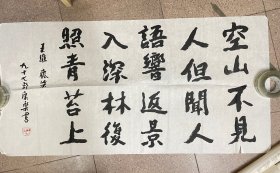 空山不見
人但聞人
語響返景
入深林復
照青苔上
王維
九十七
書